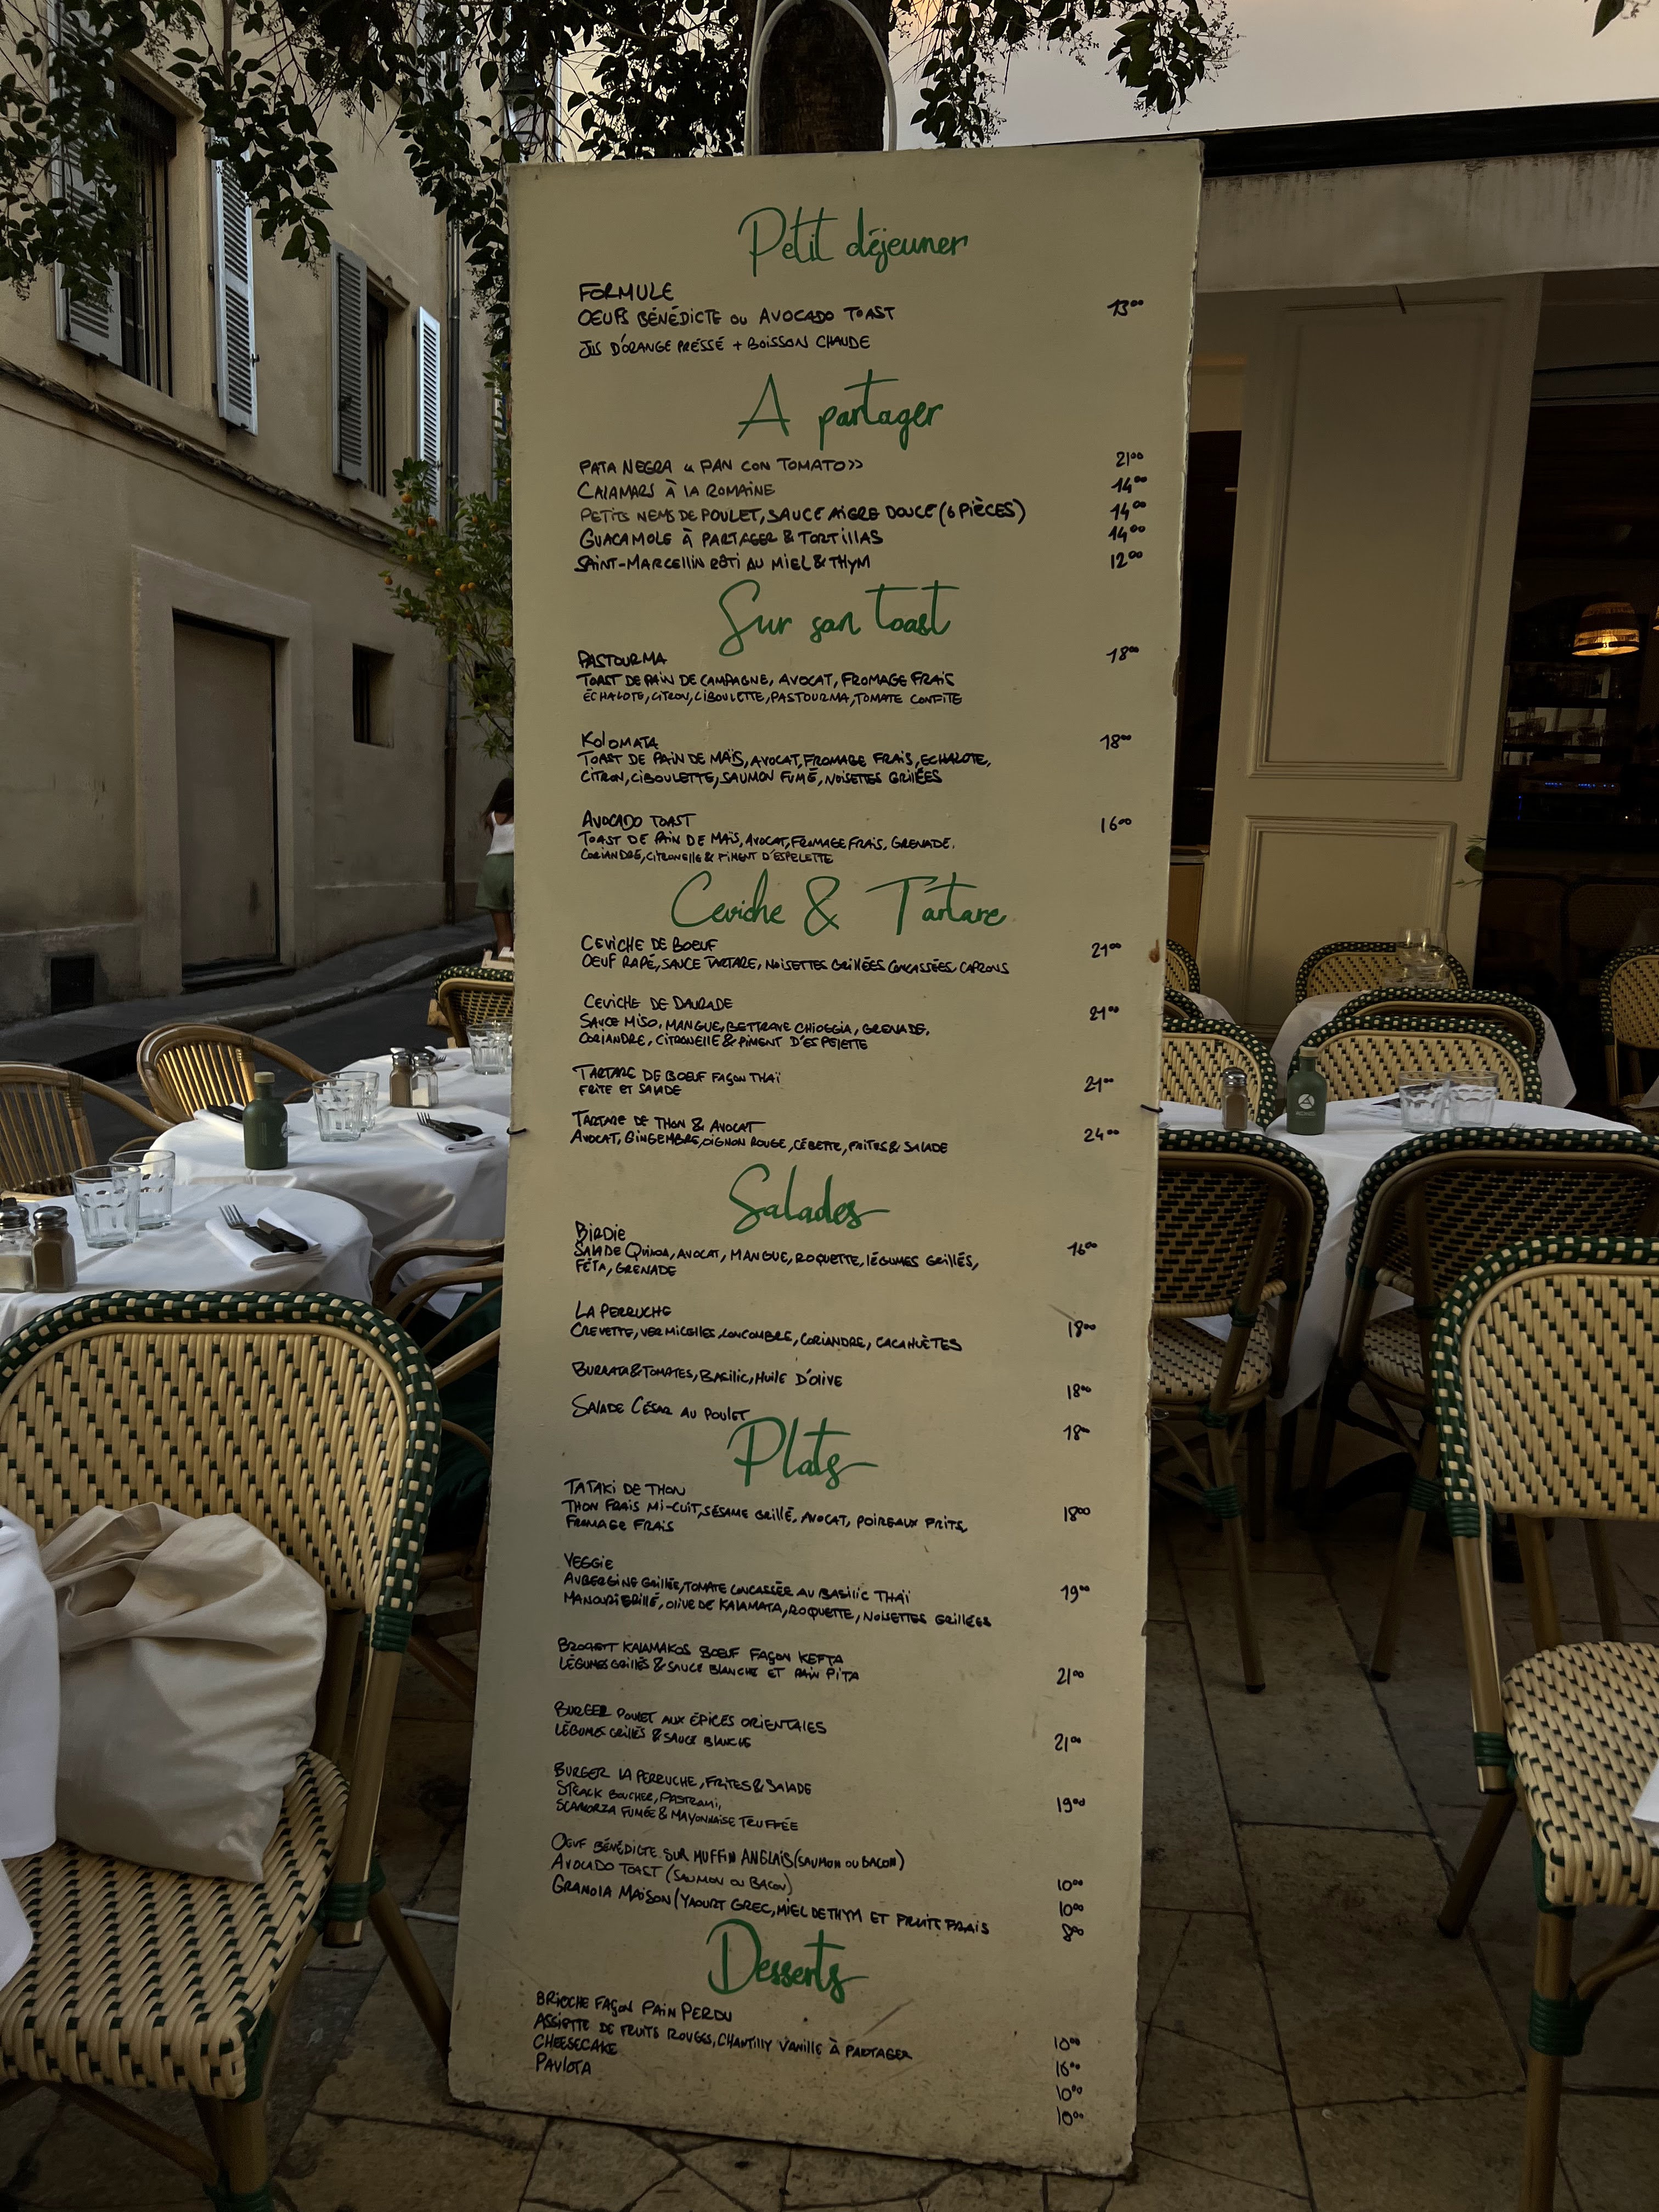 Petit déjeuner
FORMULE
OEUFS BÉNÉDICTE OU AVOCADO TOAST 13⁰⁰
JUS D'ORANGE PRESSÉ + BOISSON CHAUDE
A partager
PATA NEGRA « PAN CON TOMATO» 21⁰⁰
CALAMARS À LA ROMAINE 14⁰⁰
PETITS NEMS DE POULET, SAUCE AIGRE DOUCE (6 PIÈCES) 14⁰⁰
GUACAMOLE À PARTAGER & TORTILLAS 14⁰⁰
SAINT-MARCELLIN RÔTI AU MIEL & THYM 12⁰⁰
Sur son toast
PASTOURMA 18⁰⁰
TOAST DE PAIN DE CAMPAGNE, AVOCAT, FROMAGE FRAIS
ÉCHALOTE, CITRON, CIBOULETTE, PASTOURMA, TOMATE CONFITE
KOLOMATA 18⁰⁰
TOAST DE PAIN DE MAÏS, AVOCAT, FROMAGE FRAIS, ECHALOTE,
CITRON, CIBOULETTE, SAUMON FUMÉ, NOISETTES GRILLÉES
AVOCADO TOAST 16⁰⁰
TOAST DE PAIN DE MAÏS, AVOCAT, FROMAGE FRAIS, GRENADE,
CORIANDRE, CITRONELLE & PIMENT D'ESPELETTE
Ceviche & Tartare
CEVICHE DE BOEUF 21⁰⁰
OEUF RAPÉ, SAUCE TARTARE, NOISETTES GRILLÉES CONCASSÉES, CAPRONS
CEVICHE DE DAURADE 21⁰⁰
SAUCE MISO, MANGUE, BETTRAVE CHIOGGIA, GRENADE,
CORIANDRE, CITRONELLE & PIMENT D'ESPELETTE
TARTARE DE BOEUF FAÇON THAÏ 21⁰⁰
FRITE ET SALADE
TARTARE DE THON & AVOCAT 24⁰⁰
AVOCAT, GINGEMBRE, OIGNON ROUGE, CÉBETTE, FRITES & SALADE
Salades
BIRDIE
SALADE QUINOA, AVOCAT, MANGUE, ROQUETTE, LÉGUMES GRILLÉS, 16⁰⁰
FÉTA, GRENADE
LA PERRUCHE
CREVETTE, VERMICELLES, CONCOMBRE, CORIANDRE, CACAHUÈTES 18⁰⁰
BURRATA & TOMATES, BASILIC, HUILE D'OLIVE 18⁰⁰
SALADE CÉSAR AU POULET 18⁰⁰
Plats
TATAKI DE THON
THON FRAIS MI-CUIT, SÉSAME GRILLÉ, AVOCAT, POIREAUX FRITS, 18⁰⁰
FROMAGE FRAIS
VEGGIE
AUBERGINE GRILLÉE, TOMATE CONCASSÉE AU BASILIC THAÏ 19⁰⁰
MANOURI GRILLÉ, OLIVE DE KALAMATA, ROQUETTE, NOISETTES GRILLÉES
BROCHETT KALAMAKOS BOEUF FAÇON KEFTA
LÉGUMES GRILLÉS & SAUCE BLANCHE ET PAIN PITA 21⁰⁰
BURGER POULET AUX ÉPICES ORIENTALES
LÉGUMES GRILLÉS & SAUCE BLANCHE 21⁰⁰
BURGER LA PERRUCHE, FRITES & SALADE
STEACK BOUCHER, PASTRAMI, 19⁰⁰
SCAMORZA FUMÉE & MAYONNAISE TRUFFÉE
OEUF BÉNÉDICTE SUR MUFFIN ANGLAIS (SAUMON OU BACON) 10⁰⁰
AVOCADO TOAST (SAUMON OU BACON) 10⁰⁰
GRANOLA MAISON (YAOURT GREC, MIEL DE THYM ET FRUITS FRAIS 8⁰⁰
Desserts
BRIOCHE FAÇON PAIN PERDU 10⁰⁰
ASSIETTE DE FRUITS ROUGES, CHANTILLY VANILLE À PARTAGER 16⁰⁰
CHEESECAKE 10⁰⁰
PAVLOTA 10⁰⁰